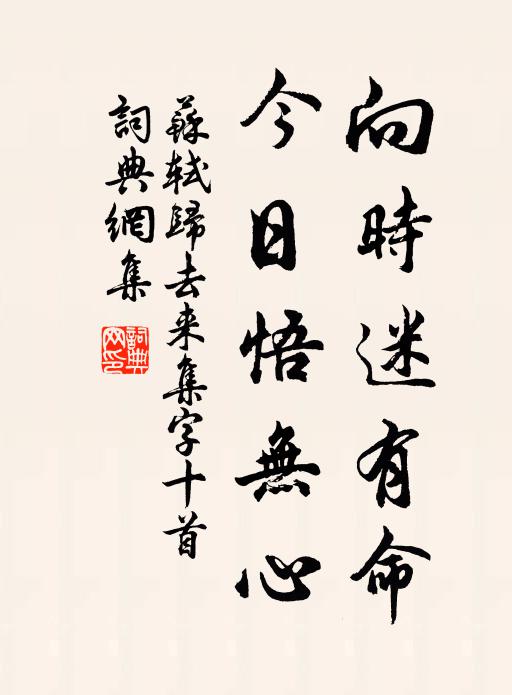 向時迷有命
今日悟無心
蘇軾歸去来集字十首
詞典網集
詞典網印